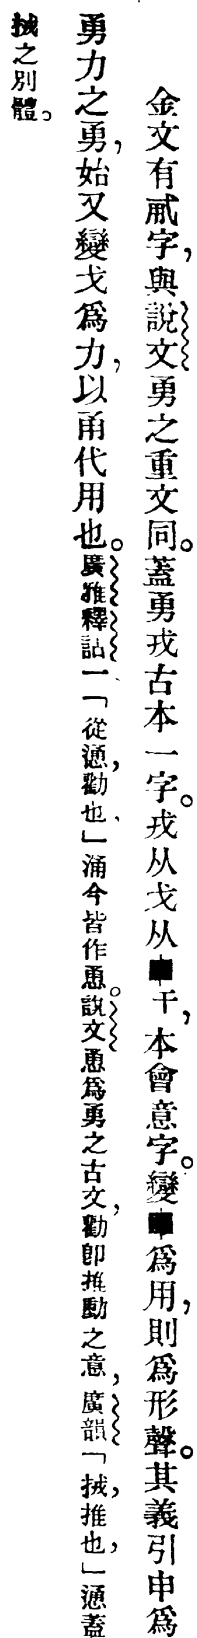 金文有㦷字，與說文勇之重文同。蓋勇戎古本一字。戎从戈从干，本會意字。變爲用，則爲形聲。其義引申爲
勇力之勇，始又變戈爲力，以甬代用也。廣雅釋詁一「從慂，勸也」涌今皆作恿。說文恿爲勇之古文，勸即推動之意，廣韻「㧴，推也，」慂蓋
㧴之別體。